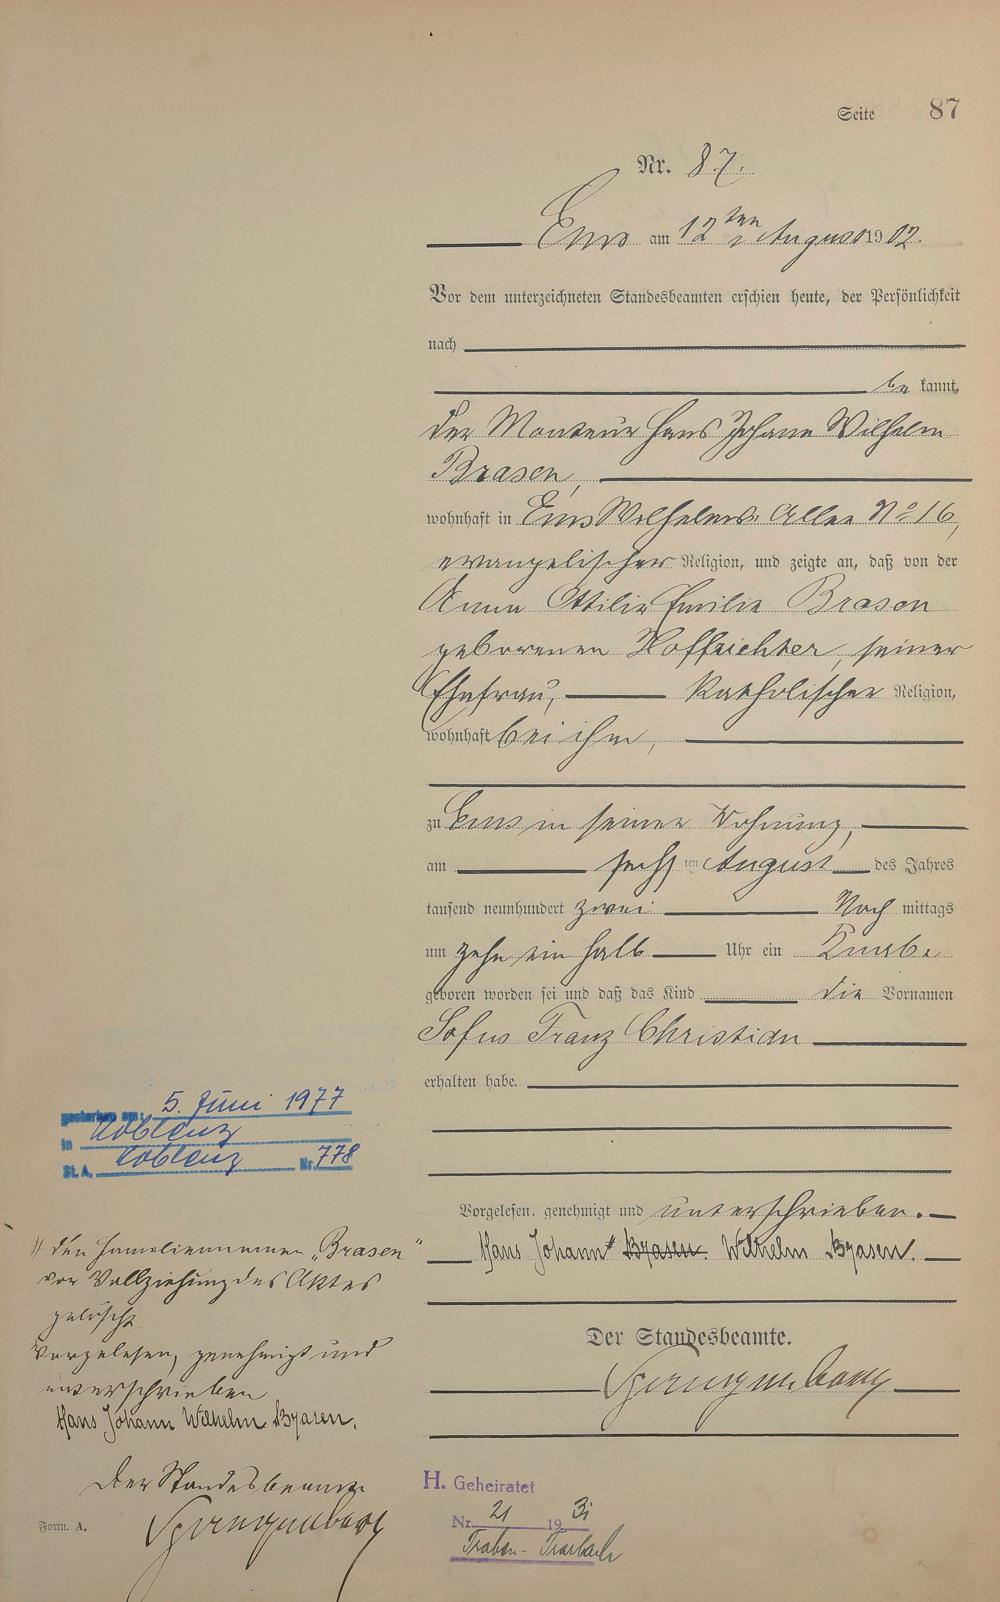 Seite 87
Nr. 87.
Ems am 12ten August 1902.
Vor dem unterzeichneten Standesbeamten erschien heute, der Persönlichkeit
nach
be kannt,
der Monteur Hans Johann Wilhelm
Brasen,
wohnhaft in Ems Wilhelms Allee No 16,
evangelischer Religion, und zeigte an, daß von der
Anna Ottilie Emilie Brasen
geborenen Hoffrichter, seiner
Ehefrau, katholischer Religion,
wohnhaft bei ihm,
zu Ems in seiner Wohnung,
am sechs ten August des Jahres
tausend neunhundert zwei Nach mittags
um zehn ein halb Uhr ein Knabe
geboren worden sei und daß das Kind die Vornamen
Sofus Franz Christian
erhalten habe.
Vorgelesen, genehmigt und unterschrieben.
Hans Johann Brasen. Wilhelm Brasen.
Der Standesbeamte.
gestorben am: 5. Juni 1977
in Koblenz
St. A. Koblenz Nr. 778
den Familiennamen „Brasen“
vor Vollziehung des Aktes
gelöscht
Vorgelesen, genehmigt und
unterschrieben
Hans Johann Wilhelm Brasen.
Der Standesbeamte
Form. A.
H. Geheiratet
Nr. 21 1931
Traben-Trarbach